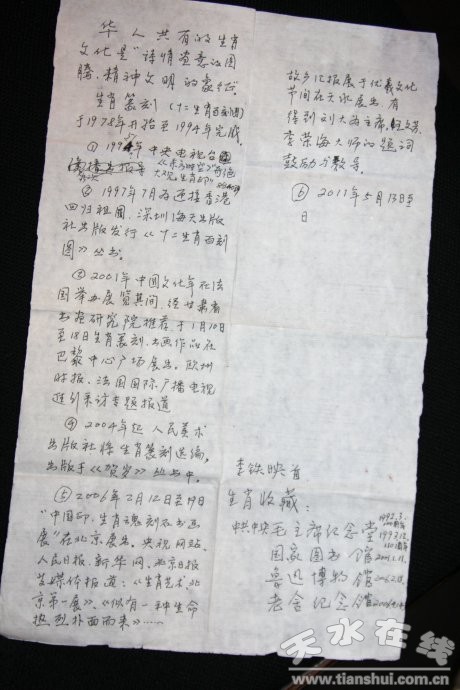 华人共有的生肖
文化是“诗情画意的图
腾、精神文明的象征。
生肖篆刻(十二生肖百刻图)
于1978年开始至1994年完成
① 1994年中央电视台
② 1997年7月为迎接香港
回归祖国,深圳海天出版
社出版发行《十二生肖百刻
图》丛书。
③ 2001年中国文化年在法
国举办展览其间,经甘肃省
书画研究院推荐于1月10日
至18日生肖篆刻、书画作品在
巴黎中心广场展出。欧州
时报、法国国际广播电视
连引采访专题报道
④ 2004年起 人民美术
出版社将生肖篆刻选编,
出版于《贺岁》丛书中。
⑤ 2006年2月12日至19日
“中国印、生肖魂刻石书画
展”在北京展出。央视网站、
人民日报、新华网、北京日报
等媒体报道:《生肖艺术、北
京第一展》、《似有一种生命
热烈扑面而来》……
故乡汇报展于伏羲文化
节间在天水展出 有
得到刘大为主席、
李荣海大师的题词
鼓励与教导。
⑥ 2011年5月13日至
日
李铁映 首
生肖收藏:
中共中央毛主席纪念堂
国家图书馆
鲁迅博物馆
老舍纪念馆
天水在线
www.tianshui.com.cn